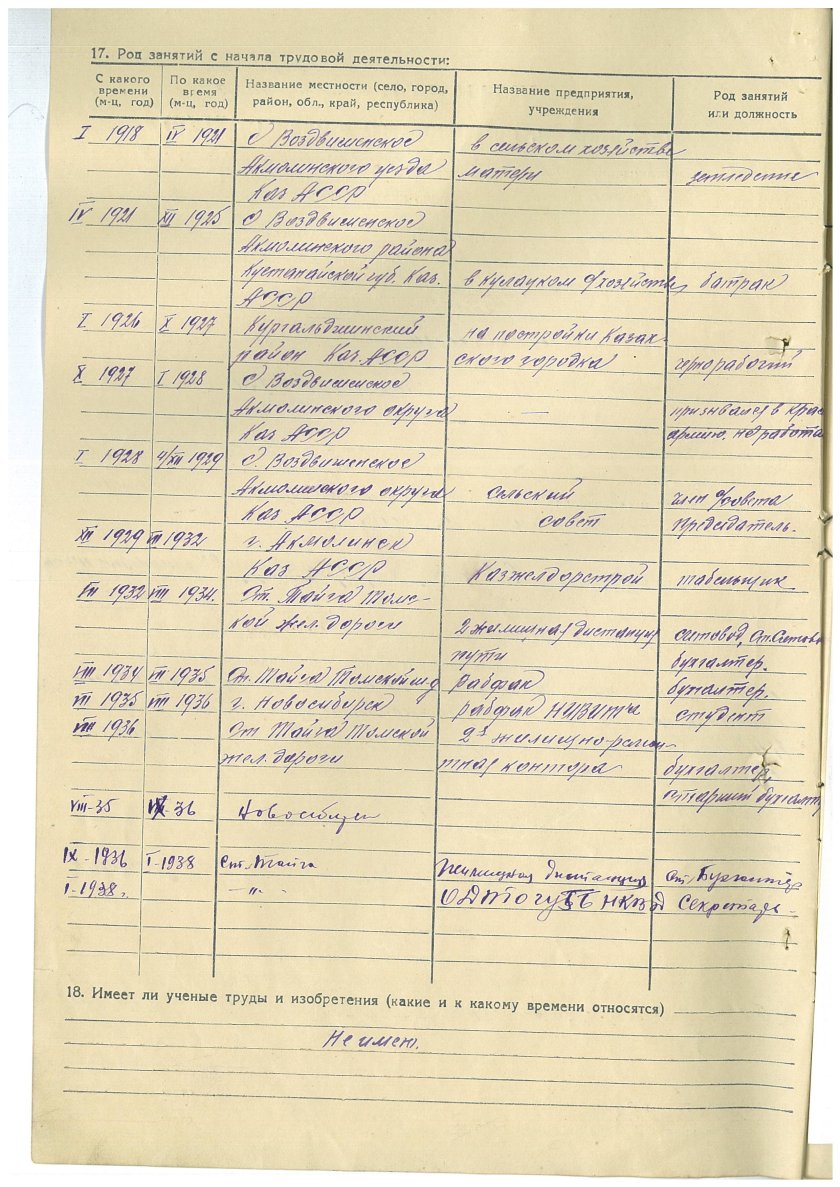 17. Род занятий с начала трудовой деятельности:
С какого времени (м-ц, год) По какое время (м-ц, год) Название местности (село, город, район, обл., край, республика) Название предприятия, учреждения Род занятий или должность
I 1918 IV 1921 С Воздвиженское в сельском хозяйстве
Акмолинского уезда матери земледелие
Каз АССР
IV 1921 XII 1925 С Воздвиженское
Акмолинского района
Кустанайской губ. Каз. в кулацком хозяйстве батрак
АССР
I 1926 X 1927 Кургальджинский на постройки Казах-
район Каз. АССР ского городка чернорабочий
X 1927 I 1928 С Воздвиженское
Акмолинского округа — призывался в крас
Каз АССР армию. не работа
I 1928 4/XII 1929 С. Воздвиженское
Акмолинского округа сельский член с/совета
Каз АССР совет председатель-
XII 1929 III 1932 г. Акмолинск
Каз АССР Казжелдорстрой табельщик
VII 1932 VIII 1934. Ст. Тайга Томс-
кой жел. дороги 2 жилищная дистанция счетовод, Ст.
пути бухгалтер.
VIII 1934 VII 1935 Ст. Тайга Томской ж.д. Рабфак бухгалтер.
VII 1935 VIII 1936 г. Новосибирск рабфак НИВИТа студент
VIII 1936 Ст Тайга Томской 2я жилищно-ремон-
жел. дороги тная контора бухгалтер,
старший бухгалт
VIII-35 IX-36 Новосибирск
IX-1936 I-1938 Ст. Тайга Жилищная дистанция Ст. Бухгалтер
I-1938 г. —"— ОДТО ГУГБ НКВД Секретарь-
18. Имеет ли ученые труды и изобретения (какие и к какому времени относятся)
Не имею.